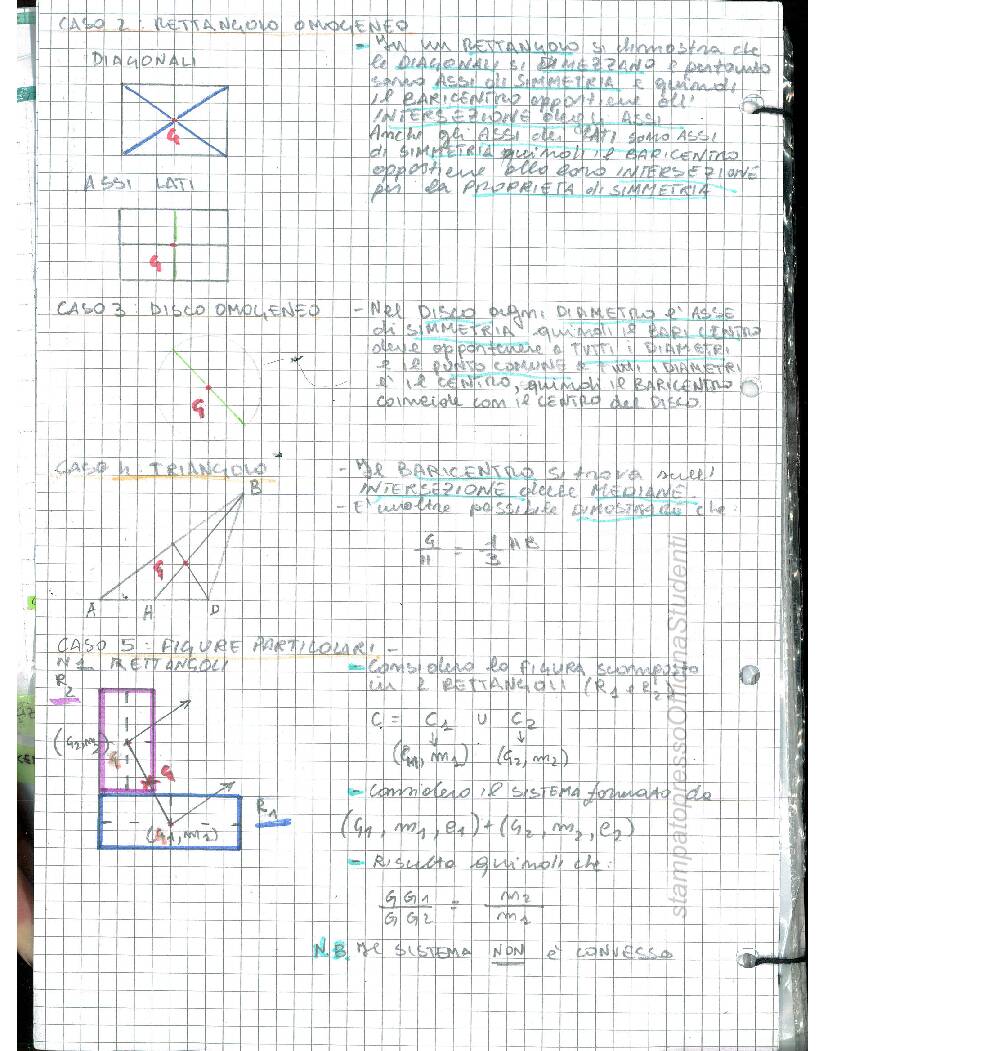 CASO 2: RETTANGOLO OMOGENEO
DIAGONALI
G
ASSI LATI
G
- In un RETTANGOLO si dimostra che
le DIAGONALI si DIMEZZANO e pertanto
sono ASSI di SIMMETRIA e quindi
il BARICENTRO appartiene all'
INTERSEZIONE degli ASSI.
Anche gli ASSI dei LATI sono ASSI
di SIMMETRIA quindi il BARICENTRO
appartiene alla loro INTERSEZIONE
per la PROPRIETA di SIMMETRIA
CASO 3: DISCO OMOGENEO
G
- Nel DISCO ogni DIAMETRO e' ASSE
di SIMMETRIA quindi il BARICENTRO
deve appartenere a TUTTI i DIAMETRI
e il PUNTO COMUNE a TUTTI i DIAMETRI
e' il CENTRO, quindi il BARICENTRO
coincide con il CENTRO del DISCO.
CASO 4: TRIANGOLO
B
G
A H D
- Il BARICENTRO si trova sull'
INTERSEZIONE delle MEDIANE.
- E' inoltre possibile DIMOSTRARE che:
G/H = 1/3 HB
CASO 5: FIGURE PARTICOLARI -
N1 RETTANGOLI
R2
(G2, m2)
G
R1
(G1, m1)
- Considero la FIGURA scomposta
in 2 RETTANGOLI (R1 e R2)
C = C1 U C2
(G1, m1) (G2, m2)
- Considero il SISTEMA formato da
(G1, m1, e1) + (G2, m2, e2)
- Risulta quindi che:
G G1 / G G2 = m2 / m1
N.B. Il SISTEMA NON e' CONVESSO
stampatopressoOfficinaStudenti